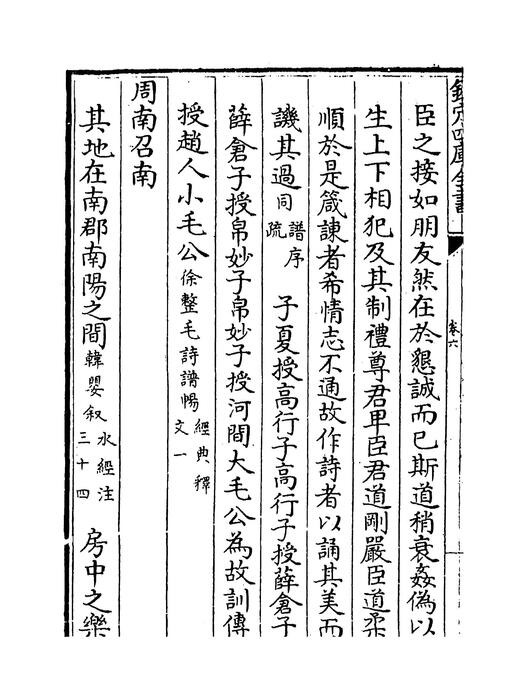 欽定四庫全書
卷六
臣之接如朋友然在於懇誠而已斯道稍衰姦偽以
生上下相犯及其制禮尊君卑臣君道剛嚴臣道柔
順於是箴諫者希情志不通故作詩者以誦其美而
譏其過同譜序疏　子夏授高行子高行子授薛倉子
薛倉子授帛妙子帛妙子授河間大毛公為故訓傳
授趙人小毛公徐整毛詩譜暢經典釋文一
周南召南
其地在南郡南陽之間韓嬰叙水經注三十四　房中之樂